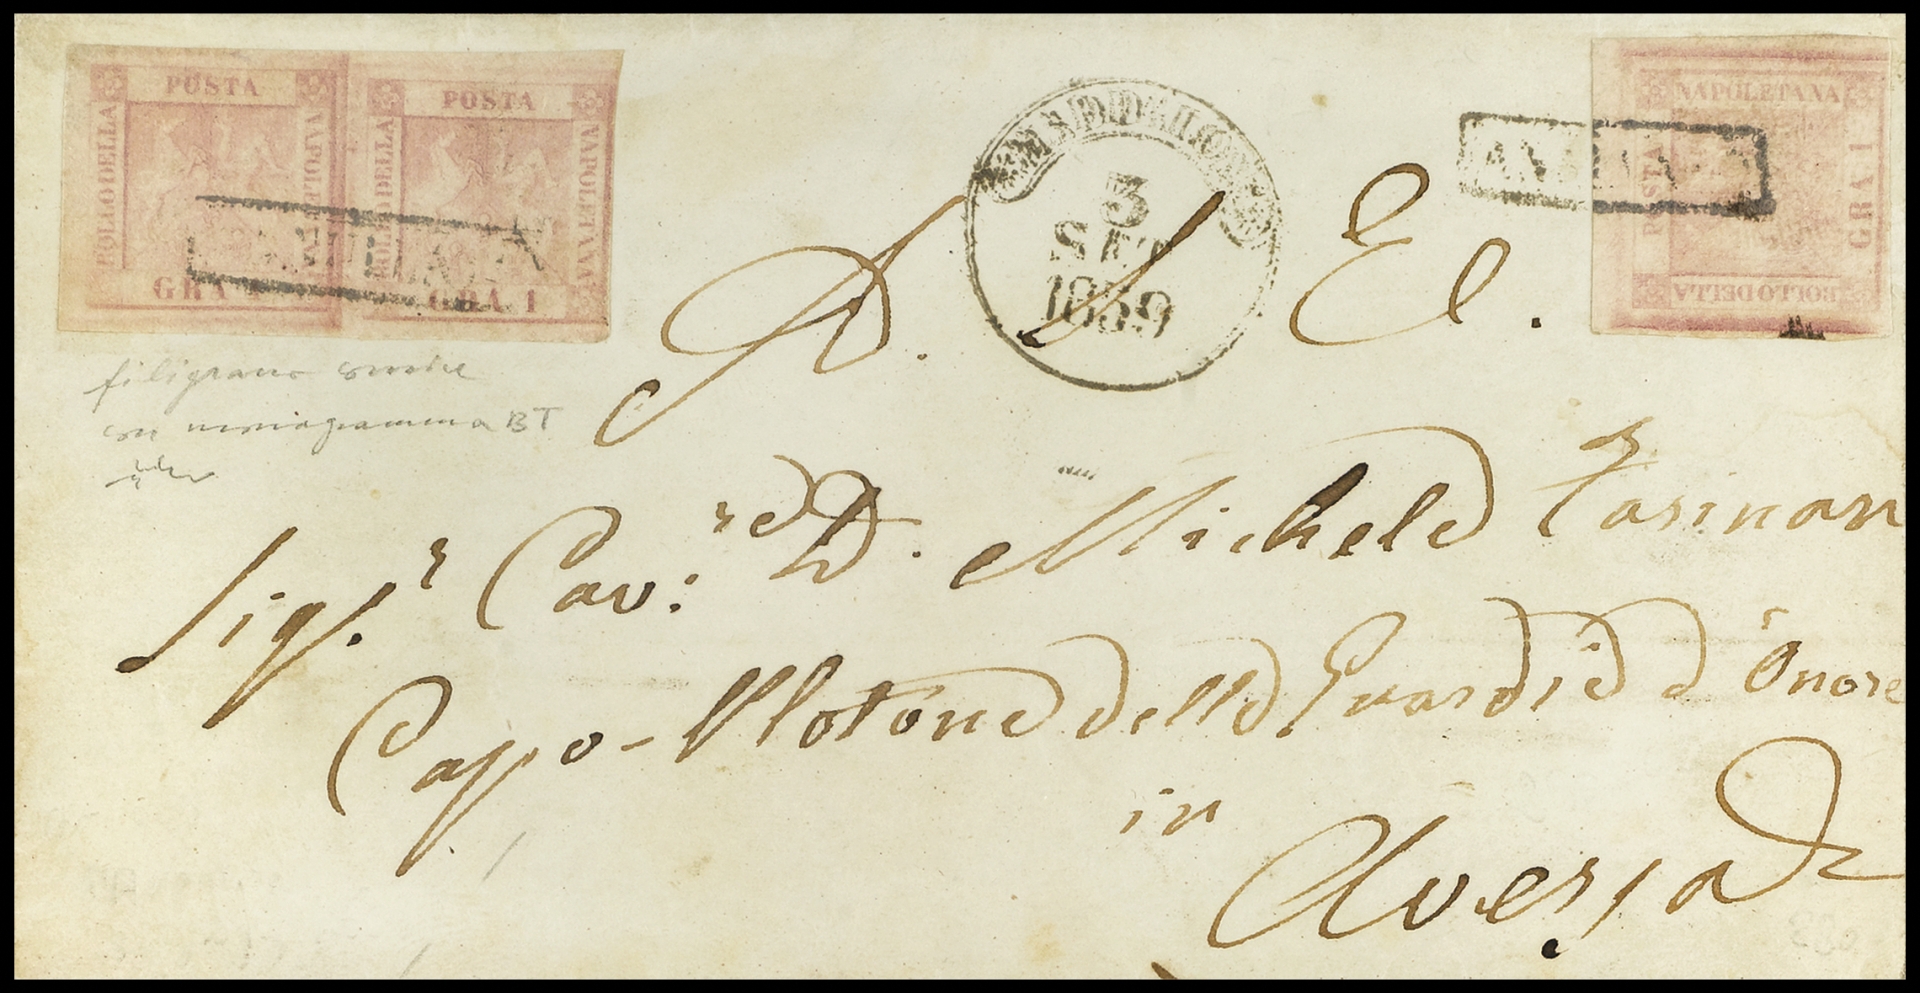 POSTA
BOLLO DELLA
NAPOLETANA
GRA 1
POSTA
BOLLO DELLA
NAPOLETANA
GRA 1
ANNULLATO
3
SET
1859
ANNULLATO
NAPOLETANA
POSTA
GRA 1
BOLLO DELLA
con monogramma BT
Sigr. Cav:re D. Michele Farinari
Capo-Plotone delle Guardie d'Onore
in
Aversa